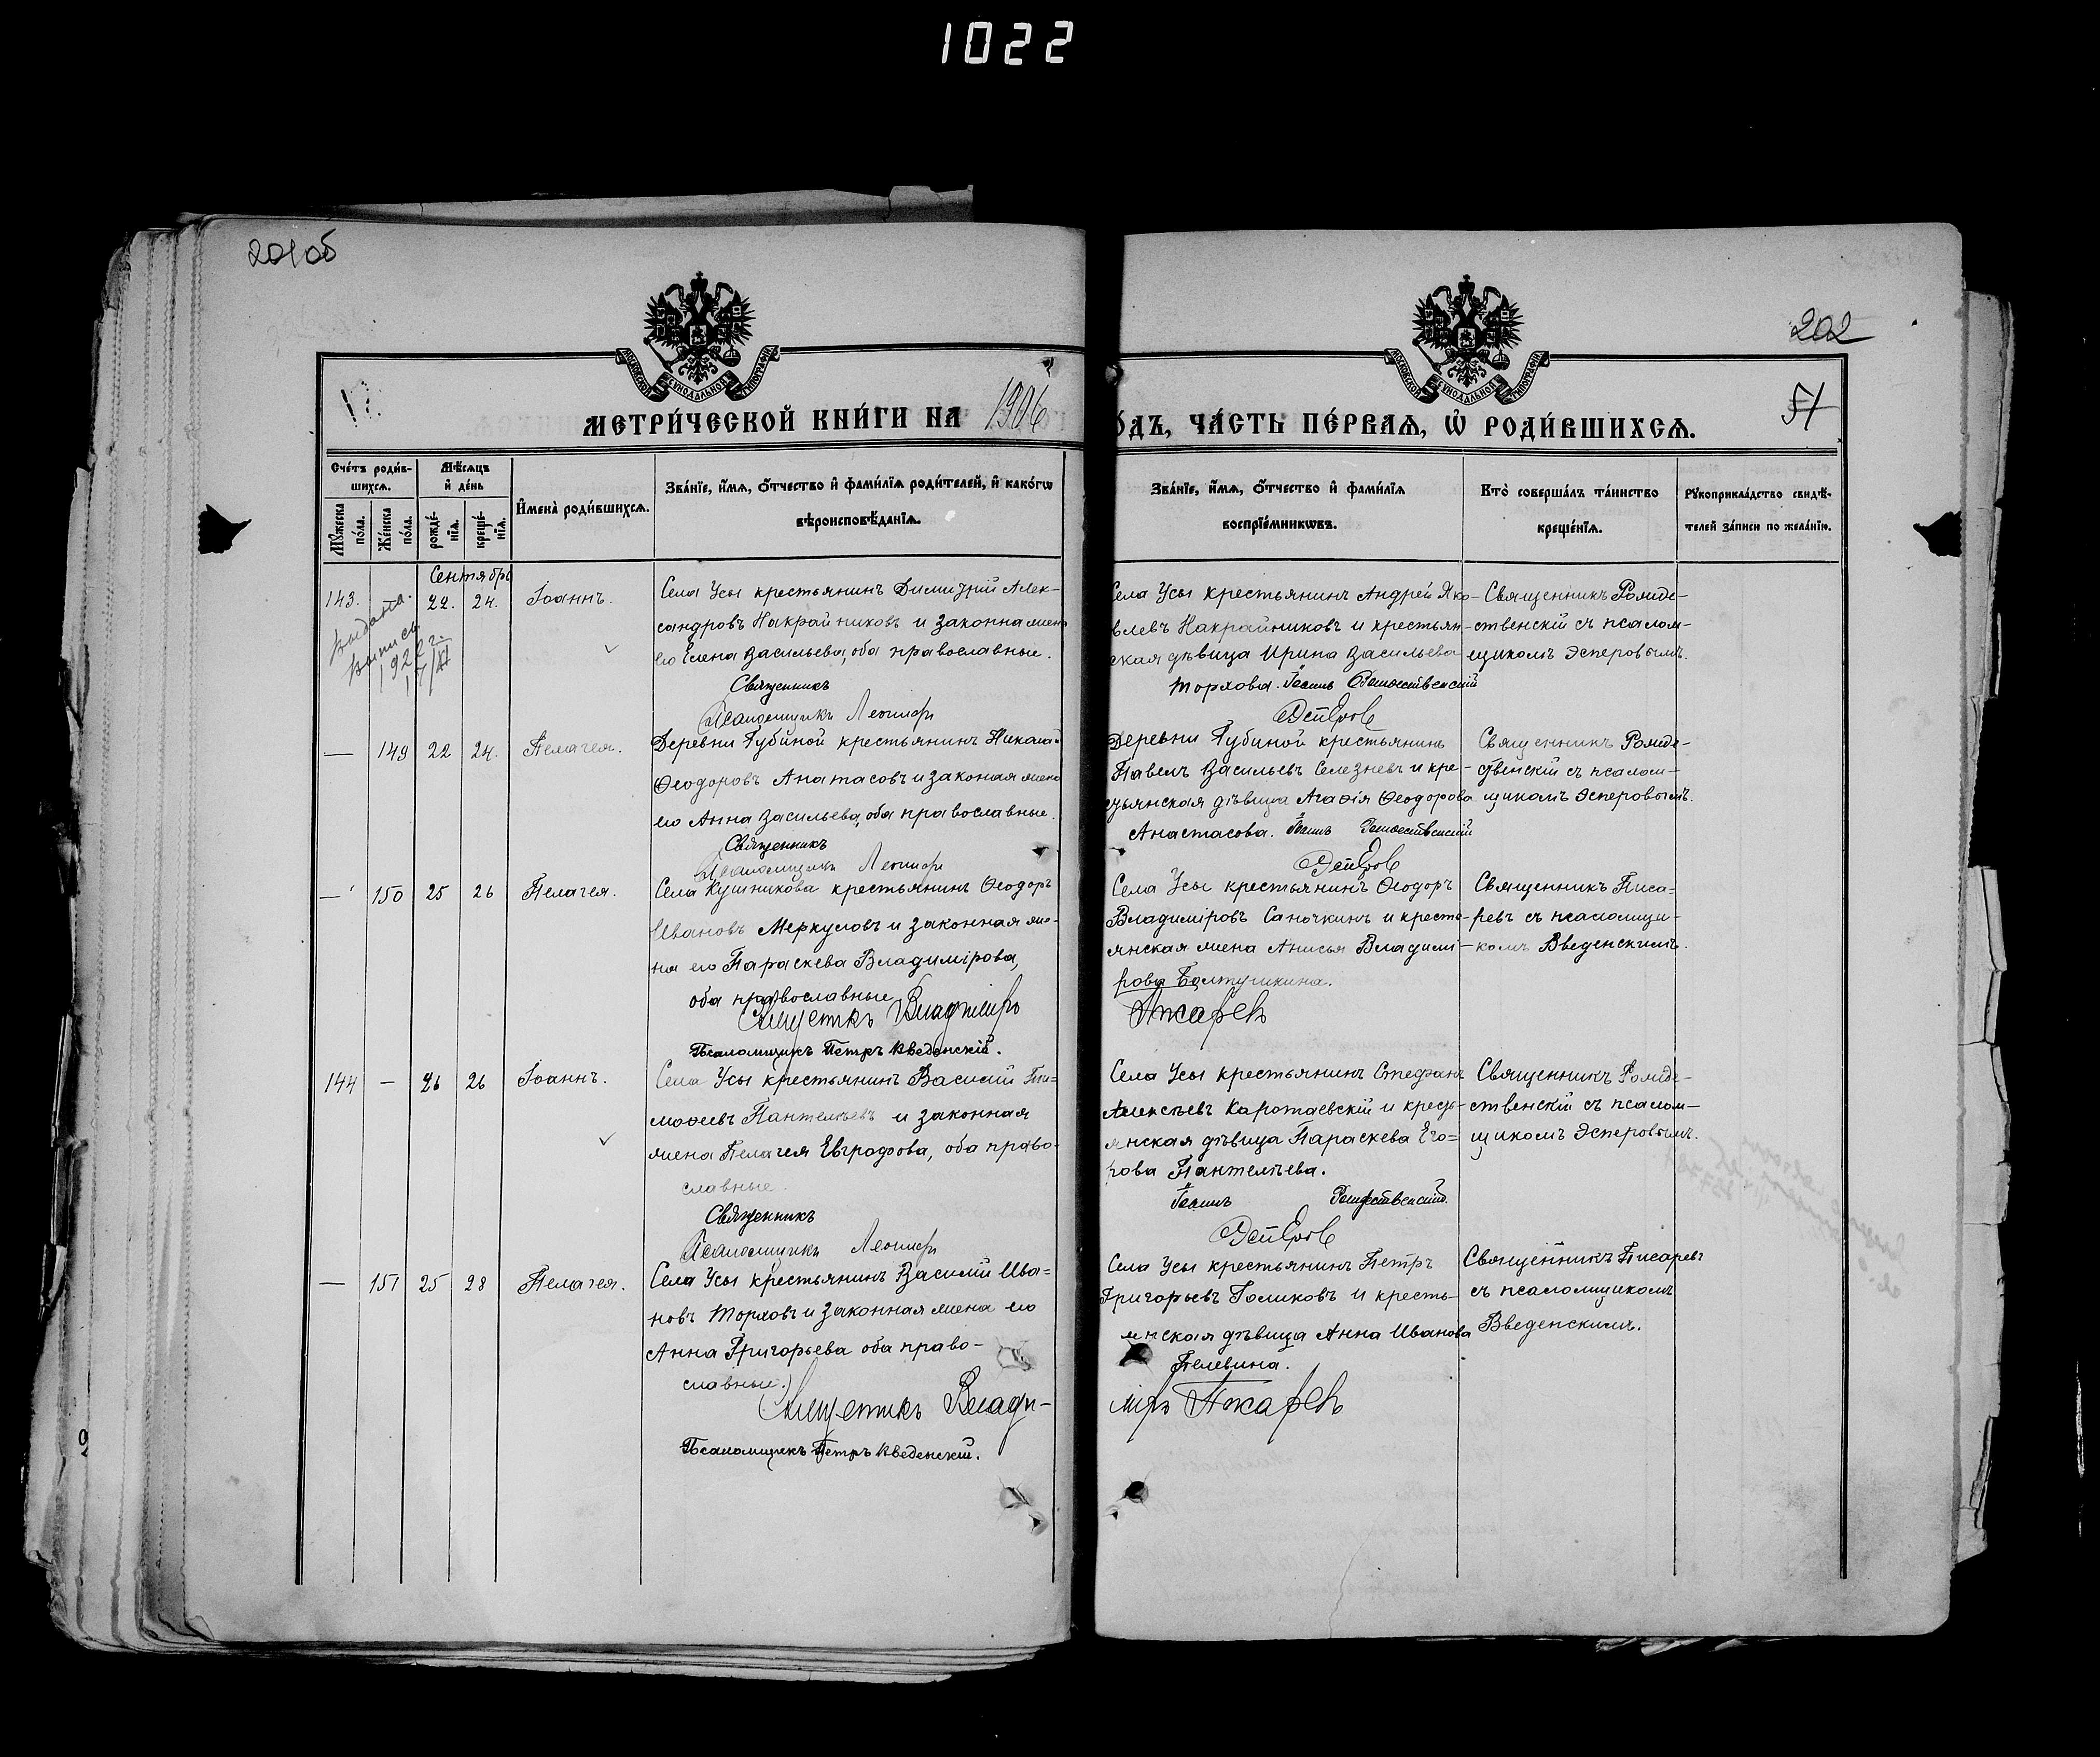 1022
201об
202
51
МОСКОВСКОЙ СУНОДАЛЬНОЙ ТИПОГРАФІИ
МОСКОВСКОЙ СУНОДАЛЬНОЙ ТИПОГРАФІИ
МЕТРИ́ЧЕСКОЙ КНИ́ГИ НА 1906
О́ДЪ, ЧА́СТЬ ПЕ́РВАѦ, Ѡ҆ РОДИ́ВШИХСѦ.
Сче́тъ роди́в-
шихсѧ.
Мꙋ́жеска
по́ла.
Же́нска
по́ла.
Мѣ́сѧцъ
и҆ де́нь
рожде́-
нїѧ.
креще́-
нїѧ.
И҆мена̀ роди́вшихсѧ.
Зва́нїе, и҆́мѧ, ѻ҆́тчество и҆ фамн́лїѧ роди́телей, и҆ како́гѡ
вѣроисповѣ́данїѧ.
Зва́нїе, и҆́мѧ, ѻ҆́тчество и҆ фами́лїѧ
воспрїе́мникѡвъ.
Кто̀ соверша́лъ та́инство
креще́нїѧ.
Рꙋкоприкла́дство свидѣ́-
телей за́писи по жела́нїю.
Сентябрь
143. 22. 24. Іоаннъ.
Выдана
выпись
1922 г.
17/XI
Села Усы крестьянинъ Димитрій Алек-
сандровъ Накрайниковъ и законна жена
его Елена Васильева, оба православные.
Священникъ
Псаломщикъ Леонидъ
Села Усы крестьянинъ Андрей Яко-
влевъ Накрайниковъ и крестьян-
ская дѣвица Ирина Васильева
Торхова. Іоаннъ Рождественскій
Эсперовъ
Священникъ Рожде-
ственскій съ псалом-
щикомъ Эсперовымъ.
— 149 22 24. Пелагея.
Деревни Губиной крестьянинъ Николай
Ѳеодоровъ Анатасовъ и законая жена
его Анна Васильева, оба православные.
Священникъ
Псаломщикъ Леонидъ
Деревни Губиной крестьянинъ
Павелъ Васильевъ Селезневъ и кре-
стьянская дѣвица Агаѳія Ѳеодорова
Анастасова. Іоаннъ Рождественскій
Эсперовъ
Священникъ Рожде-
ственскій съ псалом-
щикомъ Эсперовымъ.
— 150 25 26 Пелагея.
Села Кушникова крестьянинъ Ѳеодоръ
Ивановъ Меркуловъ и законная же-
на его Параскева Владимірова,
оба православные
Священникъ Владиміръ
Псаломщикъ Петръ Введенскій.
Села Усы крестьянинъ Ѳеодоръ
Владиміровъ Саночкинъ и кресть-
янская жена Анисья Владимі-
рова Болтушкина.
Писаревъ
Священникъ Писа-
ревъ съ псаломщи-
комъ Введенскимъ.
144 — 26 26 Іоаннъ.
Села Усы крестьянинъ Василій Ти-
моѳеевъ Пантелѣевъ и законная
жена Пелагея Евграфова, оба право-
славные.
Священникъ
Псаломщикъ Леонидъ
Села Усы крестьянинъ Стефанъ
Алексѣевъ Каротаевскій и кресть-
янская дѣвица Параскева Его-
рова Пантелѣева.
Іоаннъ Рождественскій.
Эсперовъ
Священникъ Рожде-
ственскій съ псалом-
щикомъ Эсперовымъ.
— 151 25 28 Пелагея.
Села Усы крестьянинъ Василій Ива-
новъ Торховъ и законная жена его
Анна Григорьева оба право-
славные.
Священникъ Влади-
Псаломщикъ Петръ Введенскій.
Села Усы крестьянинъ Петръ
Григорьевъ Голиковъ и кресть-
янская дѣвица Анна Иванова
Пелевина.
міръ Писаревъ
Священникъ Писаревъ
съ псаломщикомъ
Введенскимъ.